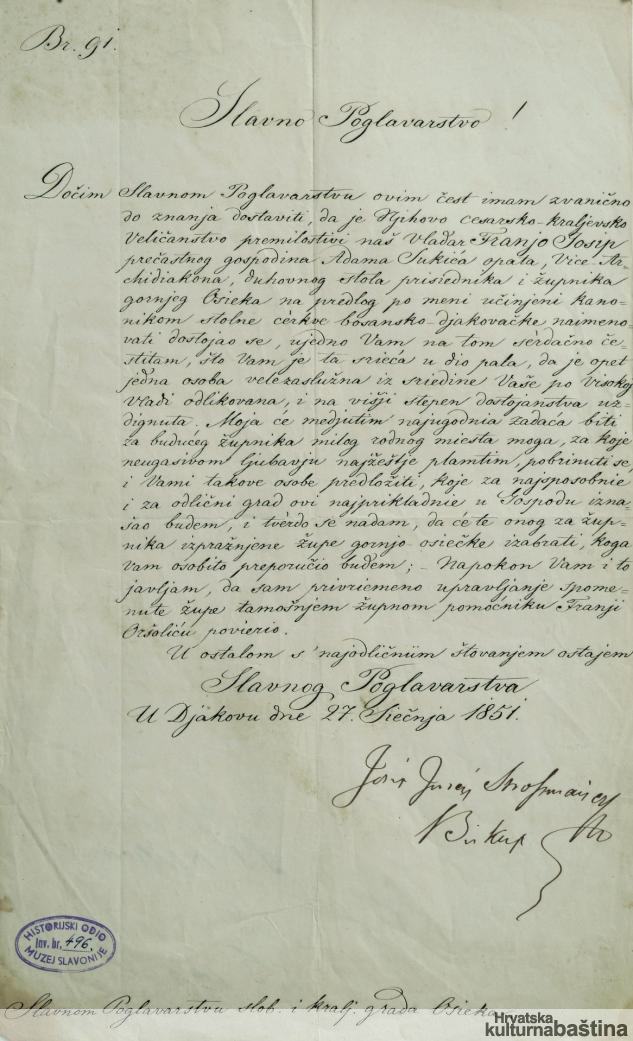 Br. 91.
Slavno Poglavarstvo!
Dočim Slavnom Poglavarstvu ovim čest imam zvanično
do znanja dostaviti, da je Njihovo cesarsko-kraljevsko
Veličanstvo premilostivi naš Vladar Franjo Josip
prečastnog gospodina Adama Sukića opata, Vice Ar-
chidiakona, duhovnog stola prisiednika i župnika
gornjeg Osieka na predlog po meni učinjeni kano-
nikom stolne cérkve bosansko-djakovačke naimeno-
vati dostojao se, ujedno Vam na tom sérdačno če-
stitam, što Vam je ta srieća u dio pala, da je opet
jedna osoba velezaslužna iz sriedine Vaše po visokoj
Vladi odlikovana, i na višji stepen dostojanstva uz-
dignuta. Moja će medjutim najugodnia zadaća biti
za budućeg župnika milog rodnog miesta moga, za koje
neugasivom ljubavju najžeštje plamtim, pobrinuti se,
i Vami takove osobe predložiti, koje za najsposobnie
i za odlični grad ovi najprikladnie u Gospodu izna-
šao budem, i tvérdo se nadam, da ćete onog za žup-
nika izpražnjene župe gornjo-osiečke izabrati, koga
Vam osobito preporučio budem; – Napokon Vam i to
javljam, da sam privriemeno upravljanje spome-
nute župe tamošnjem župnom pomoćniku Franji
Oršoliću povierio.
U ostalom s' najodličniim štovanjem ostajem
Slavnog Poglavarstva
U Djakovu dne 27. Siečnja 1851.
Josip Juraj Stroßmayer
Biskup
HISTORIJSKI ODIO
Inv. br. 496.
MUZEJ SLAVONIJE
Slavnom Poglavarstvu slob. i kralj. grada Osieka
Hrvatska
kulturnabaština